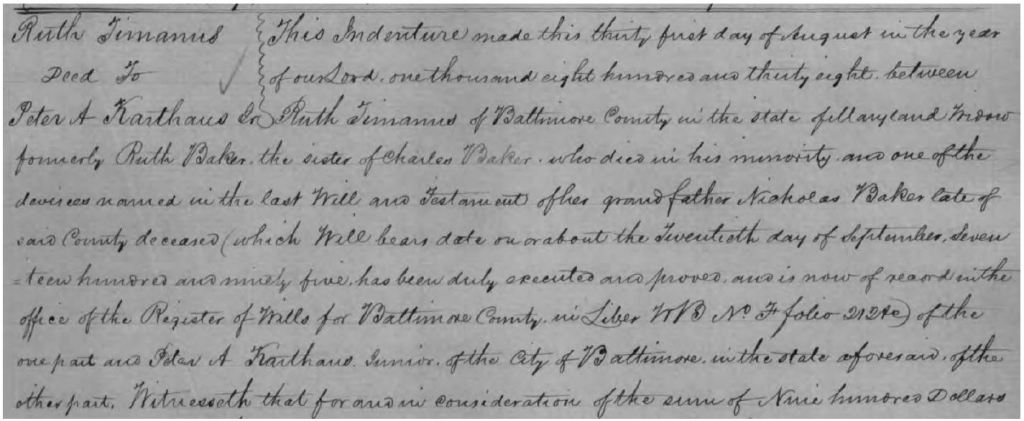 Ruth Timanus This Indenture made this thirty first day of August in the year
Deed To of our Lord. one thousand eight hundred and thirty eight. between
Peter A Karthaus Jr Ruth Timanus of Baltimore County in the state of Maryland Widow
formerly Ruth Baker. the sister of Charles Baker. who died in his minority. and one of the
devisees named in the last Will and Testament of her grand father Nicholas Baker late of
said County deceased (which Will bears date on or about the Twentieth day of September, Seven
=teen hundred and ninety five, has been duly executed and proved, and is now of record in the
office of the Register of Wills for Baltimore County. in Liber WB No. F folio 212 &c) of the
one part and Peter A Karthaus. Junior. of the City of Baltimore. in the state aforesaid. of the
other part. Witnesseth that for and in consideration of the sum of Nine hundred Dollars